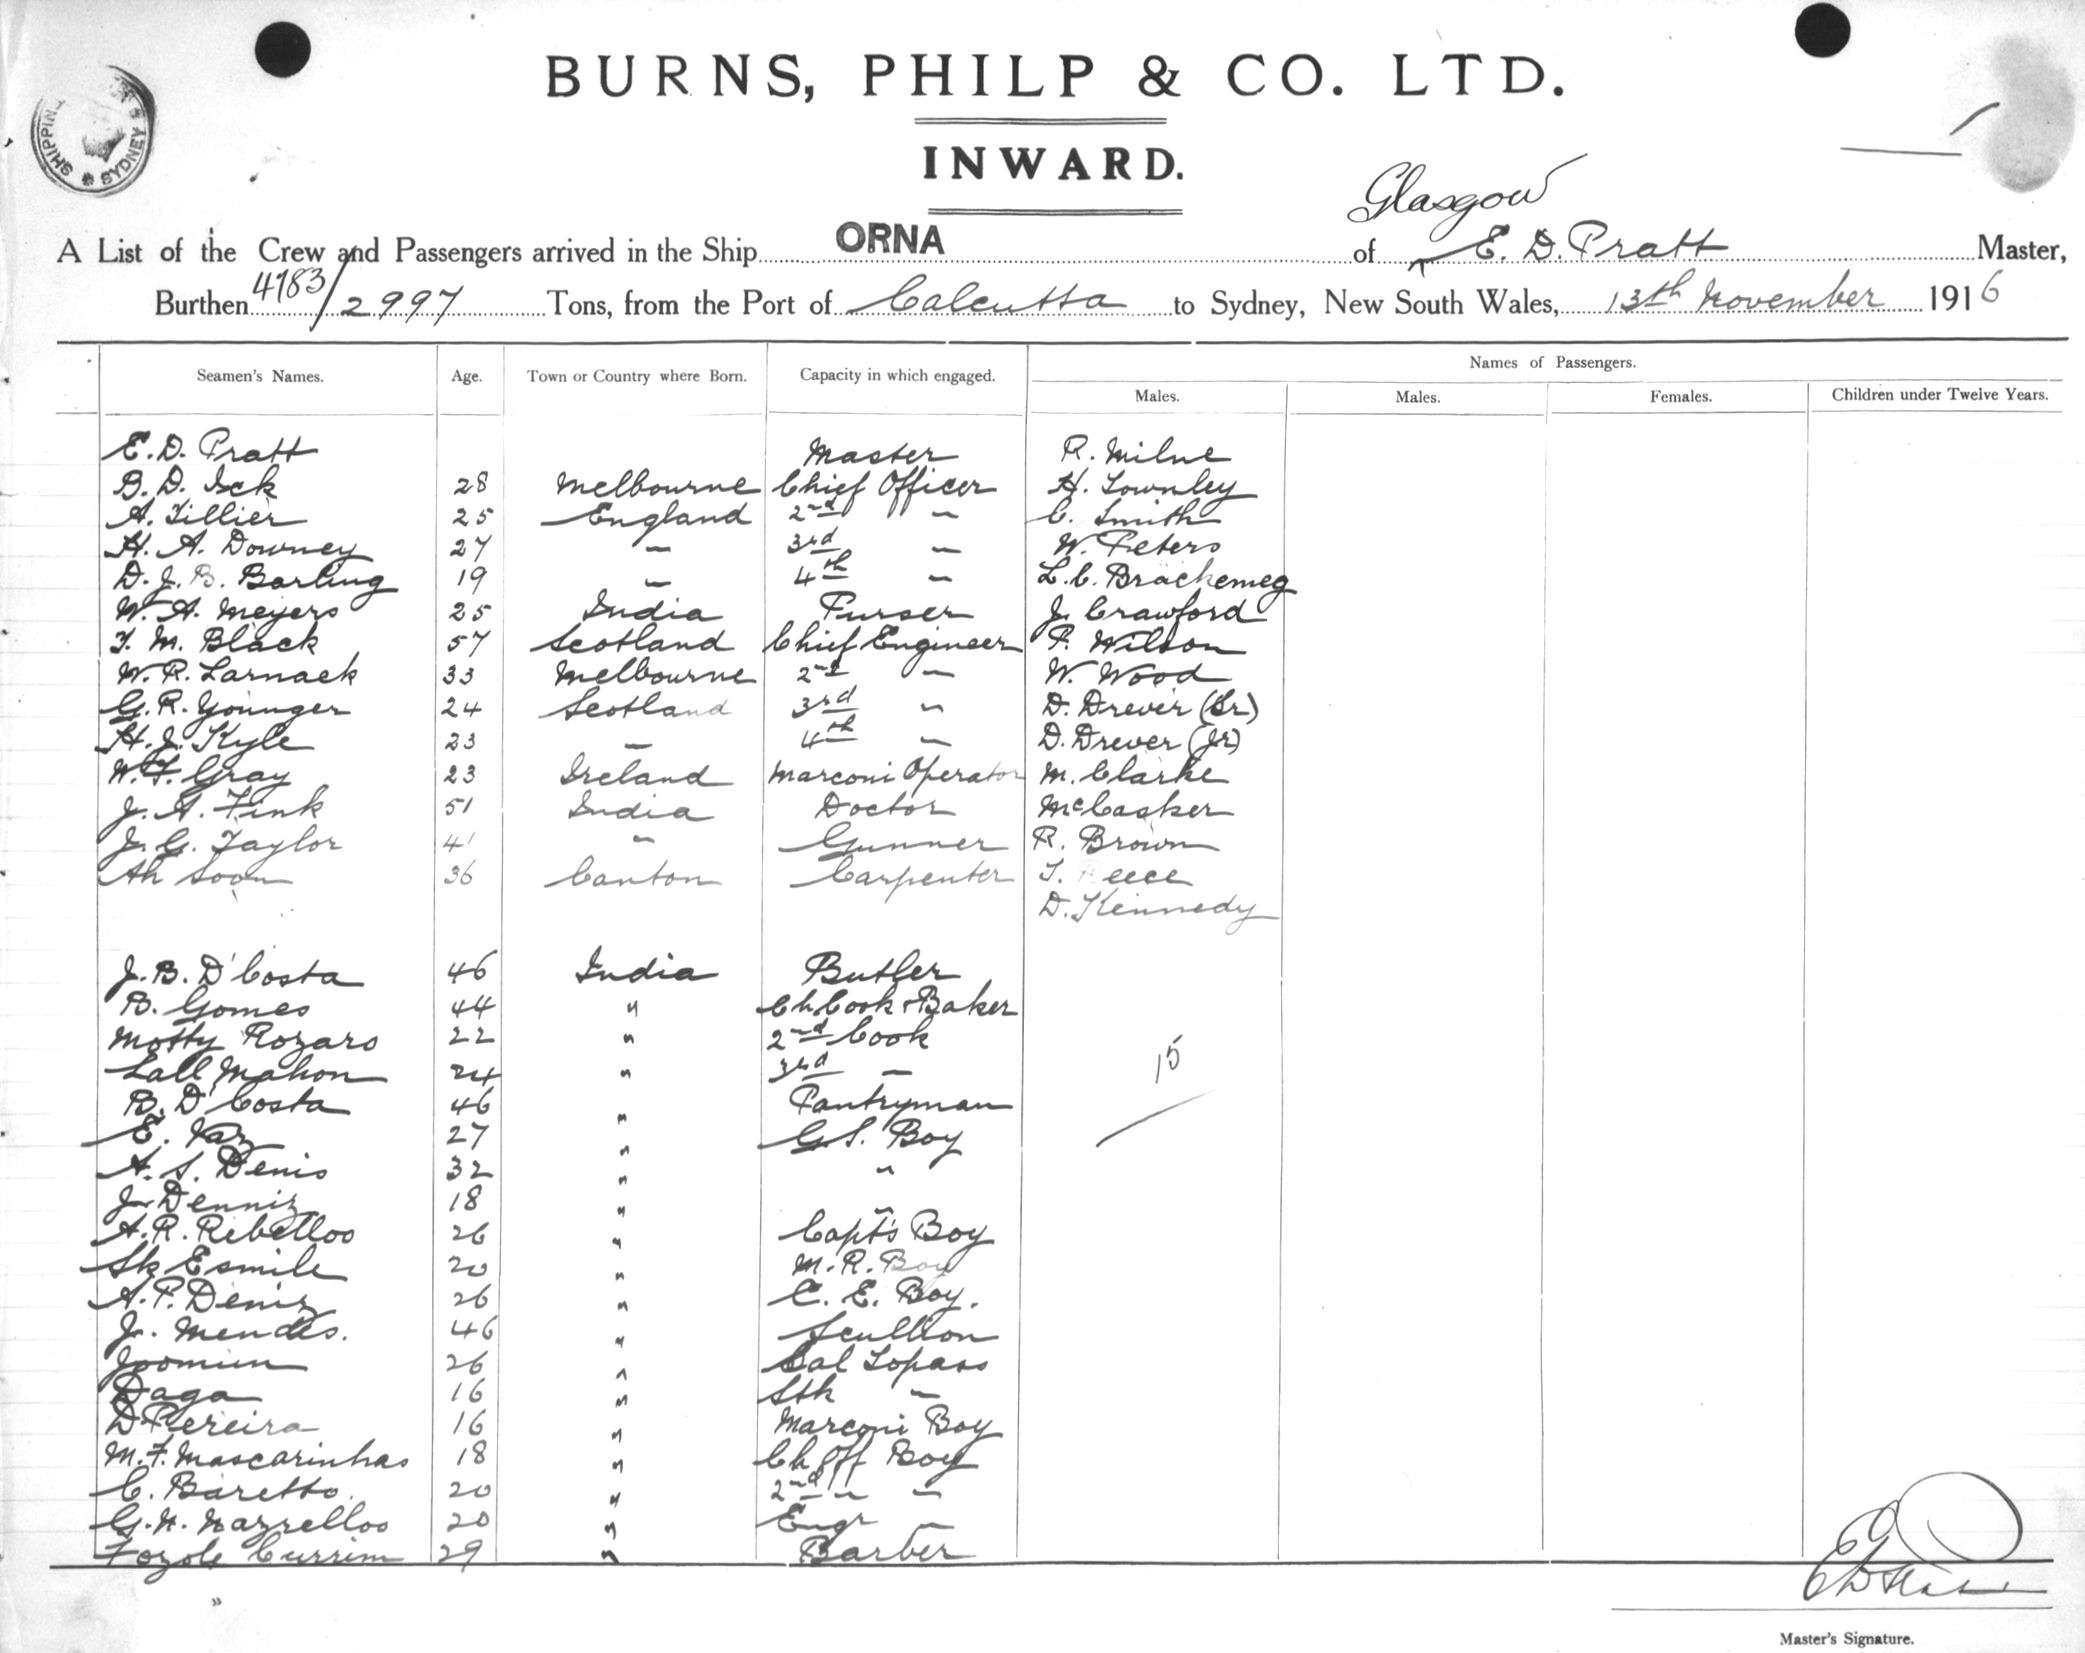 BURNS, PHILP & CO. LTD.
INWARD.
SHIPPING SYDNEY
Glasgow
A List of the Crew and Passengers arrived in the Ship ORNA of E. D. Pratt Master,
Burthen 4783/2997 Tons, from the Port of Calcutta to Sydney, New South Wales, 13th November 1916
Names of Passengers.
Seamen's Names. Age. Town or Country where Born. Capacity in which engaged. Males. Males. Females. Children under Twelve Years.
E. D. Pratt Master R. Milne
B. D. Isck 28 Melbourne Chief Officer H. Townley
A. Tillier 25 England 2nd " C. Smith
H. A. Downey 27 " 3rd " W. Peters
D. J. B. Barling 19 " 4th " L. C. Brackemeg
W. A. Meyers 25 India Purser J. Crawford
T. M. Black 57 Scotland Chief Engineer P. Wilson
W. R. Larnack 33 Melbourne 2nd " W. Wood
G. R. Younger 24 Scotland 3rd " D. Drever (Sr)
H. J. Kyle 23 " 4th " D. Drever (Jr)
W. T. Gray 23 Ireland Marconi Operator M. Clarke
J. A. Fink 51 India Doctor McCasker
J. G. Taylor 41 " Gunner R. Brown
Ah Soon 36 Canton Carpenter T. Reece
D. Kennedy
J. B. D'Costa 46 India Butler
B. Gomes 44 " Ch Cook & Baker
Motty Rozaro 22 " 2nd Cook
Lall Mahon 24 " 3rd "
B. D'Costa 46 " Pantryman
E. Vaz 27 " G. S. Boy
A. S. Denis 32 " "
J. Denniz 18 " "
A. R. Rebellos 26 " Capt's Boy
Sk Esmile 20 " M. R. Boy
A. P. Deniz 26 " C. E. Boy.
J. Mendes. 46 " Scullion
Joomun 26 " Sal Topass
Daga 16 " Stk "
D Pereira 16 " Marconi Boy
M. F. Mascarinhas 18 " Ch Off Boy
C. Baretto. 20 " 2nd " "
G. N. Nazrellos 20 " Engr "
Fozole Currim 29 " Barber
15
Master's Signature.